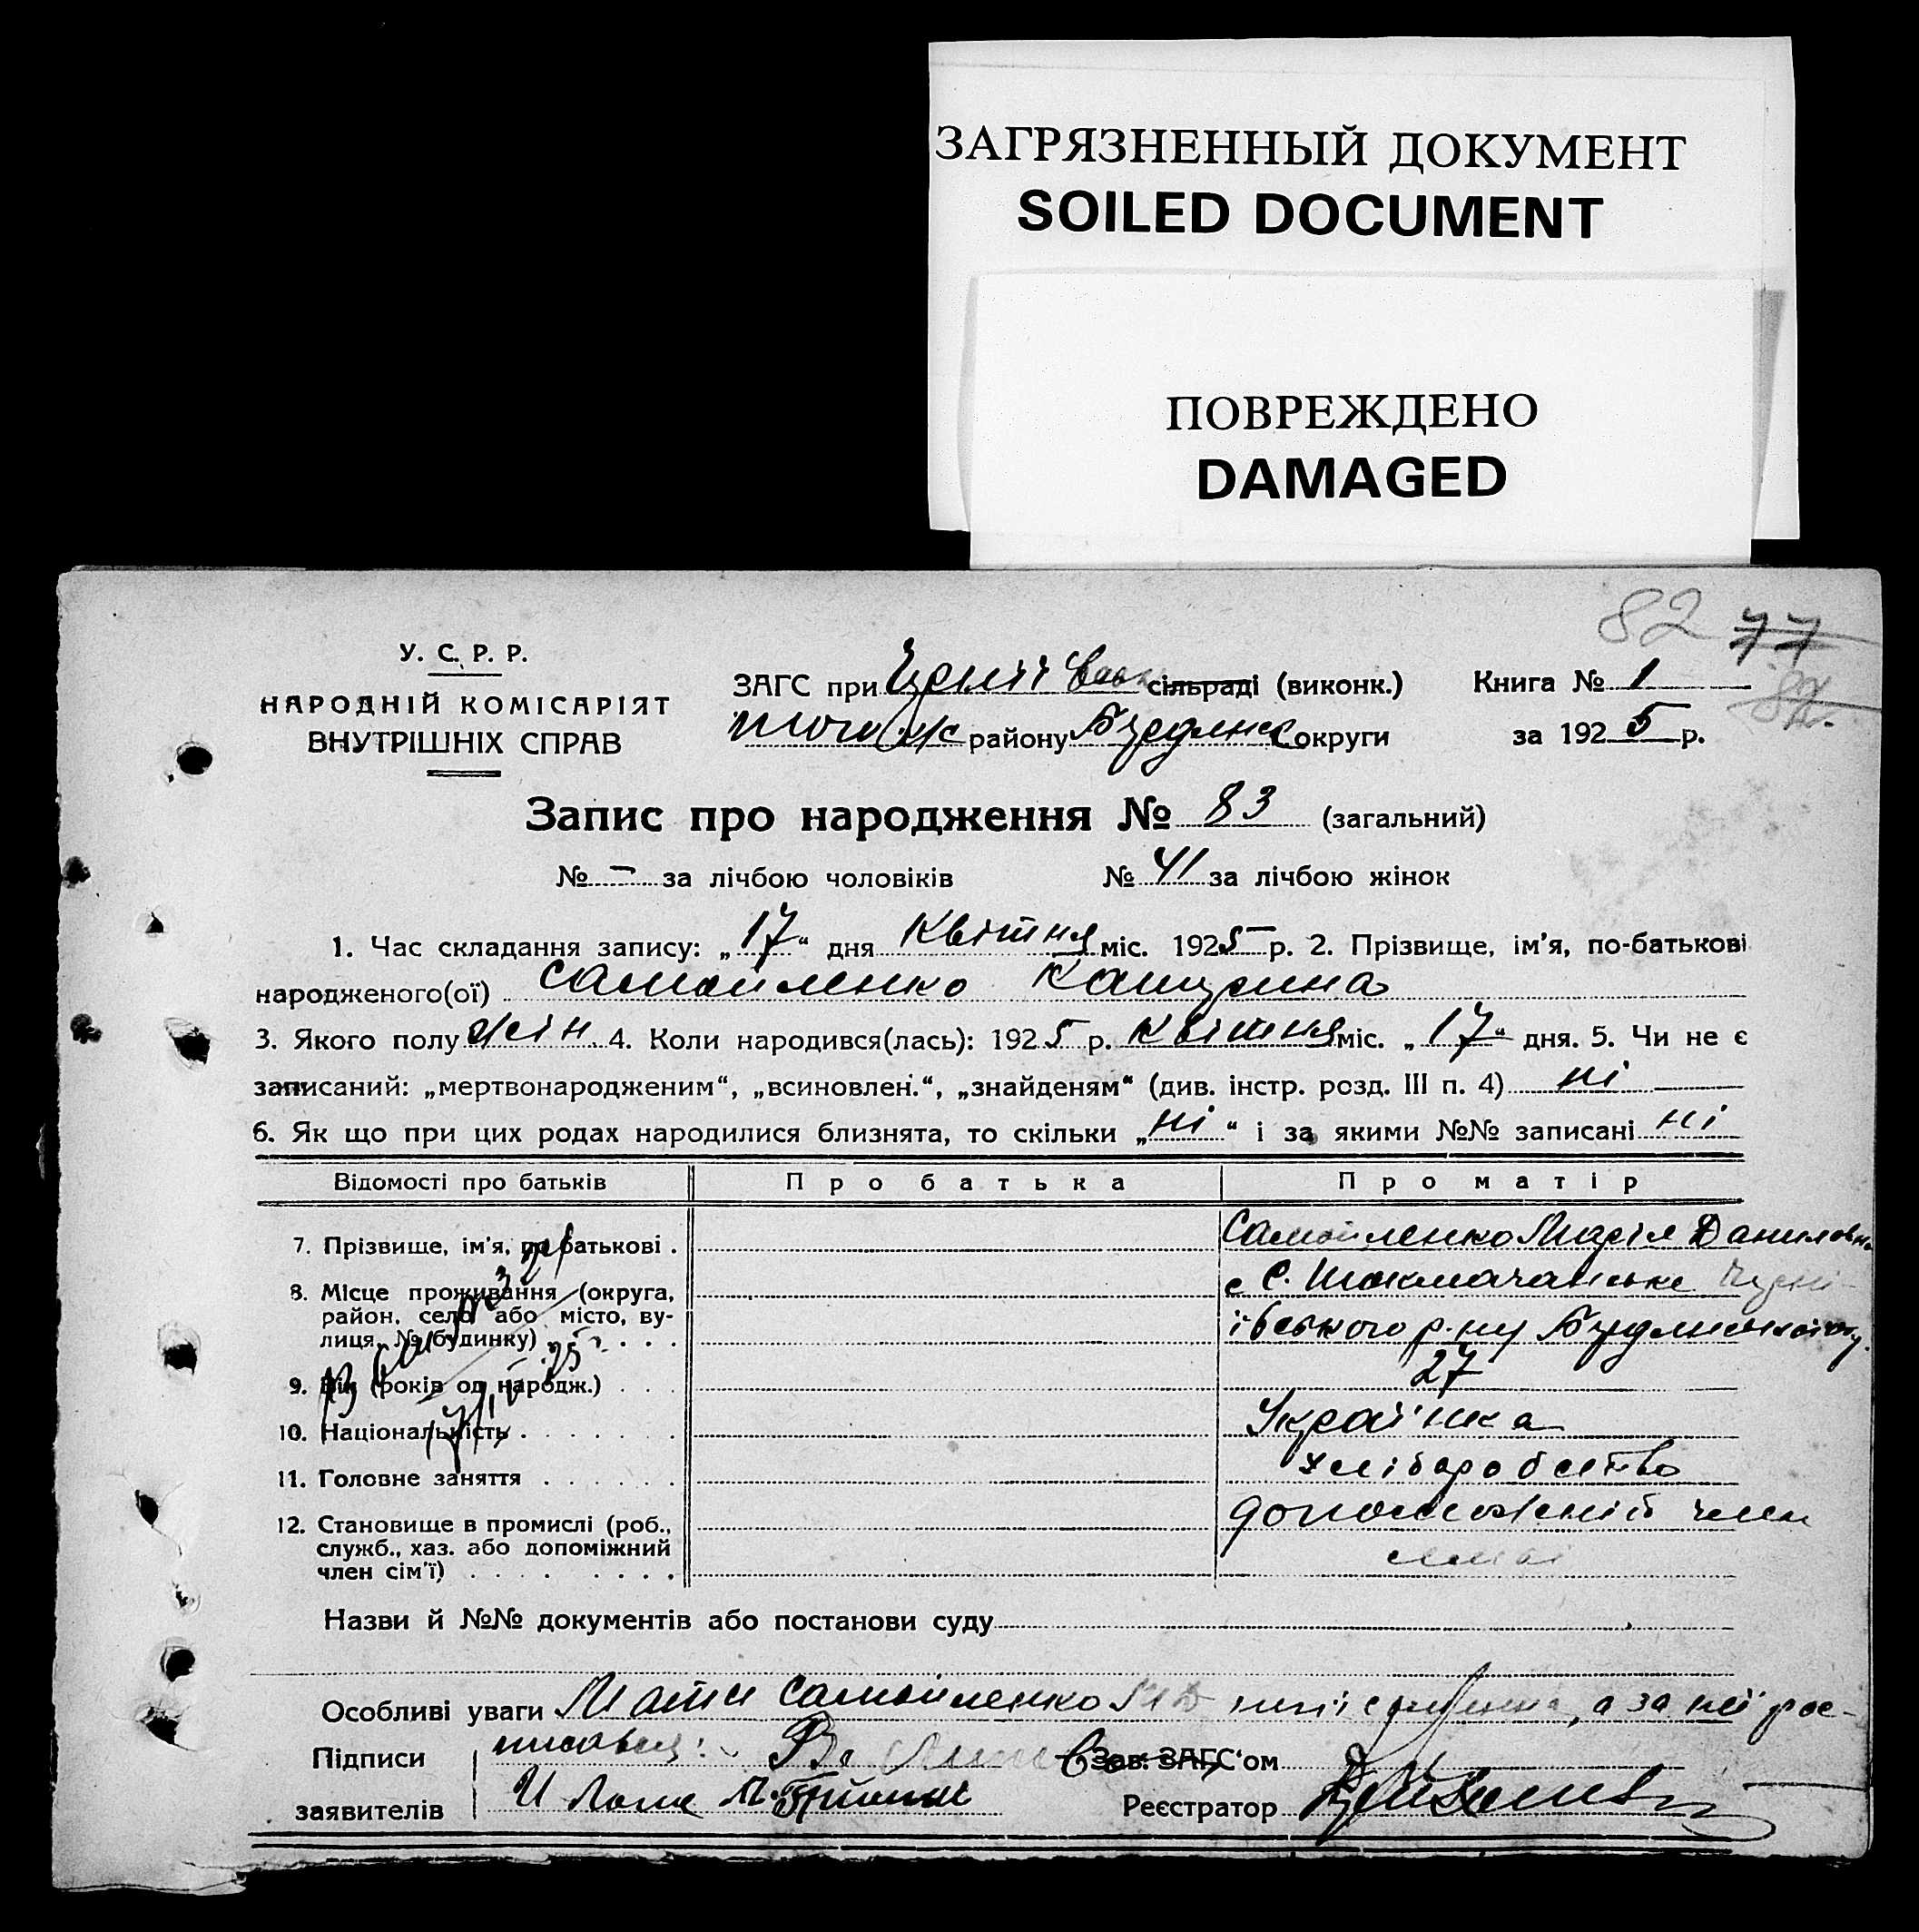 ЗАГРЯЗНЕННЫЙ ДОКУМЕНТ
SOILED DOCUMENT
ПОВРЕЖДЕНО
DAMAGED
82 77
82.
У. С. Р. Р.
НАРОДНІЙ КОМІСАРІЯТ
ВНУТРІШНІХ СПРАВ
ЗАГС при сільраді (виконк.)
району округи
Книга № 1
за 1925 р.
Запис про народження № 83 (загальний)
№ – за лічбою чоловіків № 41 за лічбою жінок
1. Час складання запису: „17“ дня Квітня міс. 1925 р. 2. Прізвище, ім'я, по-батькові
народженого(ої) Самойленко Катерина
3. Якого полу жін. 4. Коли народився(лась): 1925 р. квітня міс. „17“ дня. 5. Чи не є
записаний: „мертвонародженим“, „всиновлен.“, „знайденям“ (див. інстр. розд. III п. 4) ні
6. Як що при цих родах народилися близнята, то скільки „ні“ і за якими №№ записані ні
Відомості про батьків Про батька Про матір
7. Прізвище, ім'я, по батькові . Самойленко Марія Даниловна
8. Місце проживання (округа, с. Токмачанське
район, село або місто, ву-
лиця, № будинку) . . . . івського р-ну
9. Вік (років од народж.) . . . 27
10. Національність . . . . . . . Українка
11. Головне заняття . . . . . . хліборобство
12. Становище в промислі (роб., допоможній член
служб., хаз. або допоміжний
член сім'ї) . . . . . . . . .
Назви й №№ документів або постанови суду
Особливі уваги Мати Самойленко , а за неї рос-
Підписи писавсь: Зав. ЗАГС'ом
заявителів Реєстратор